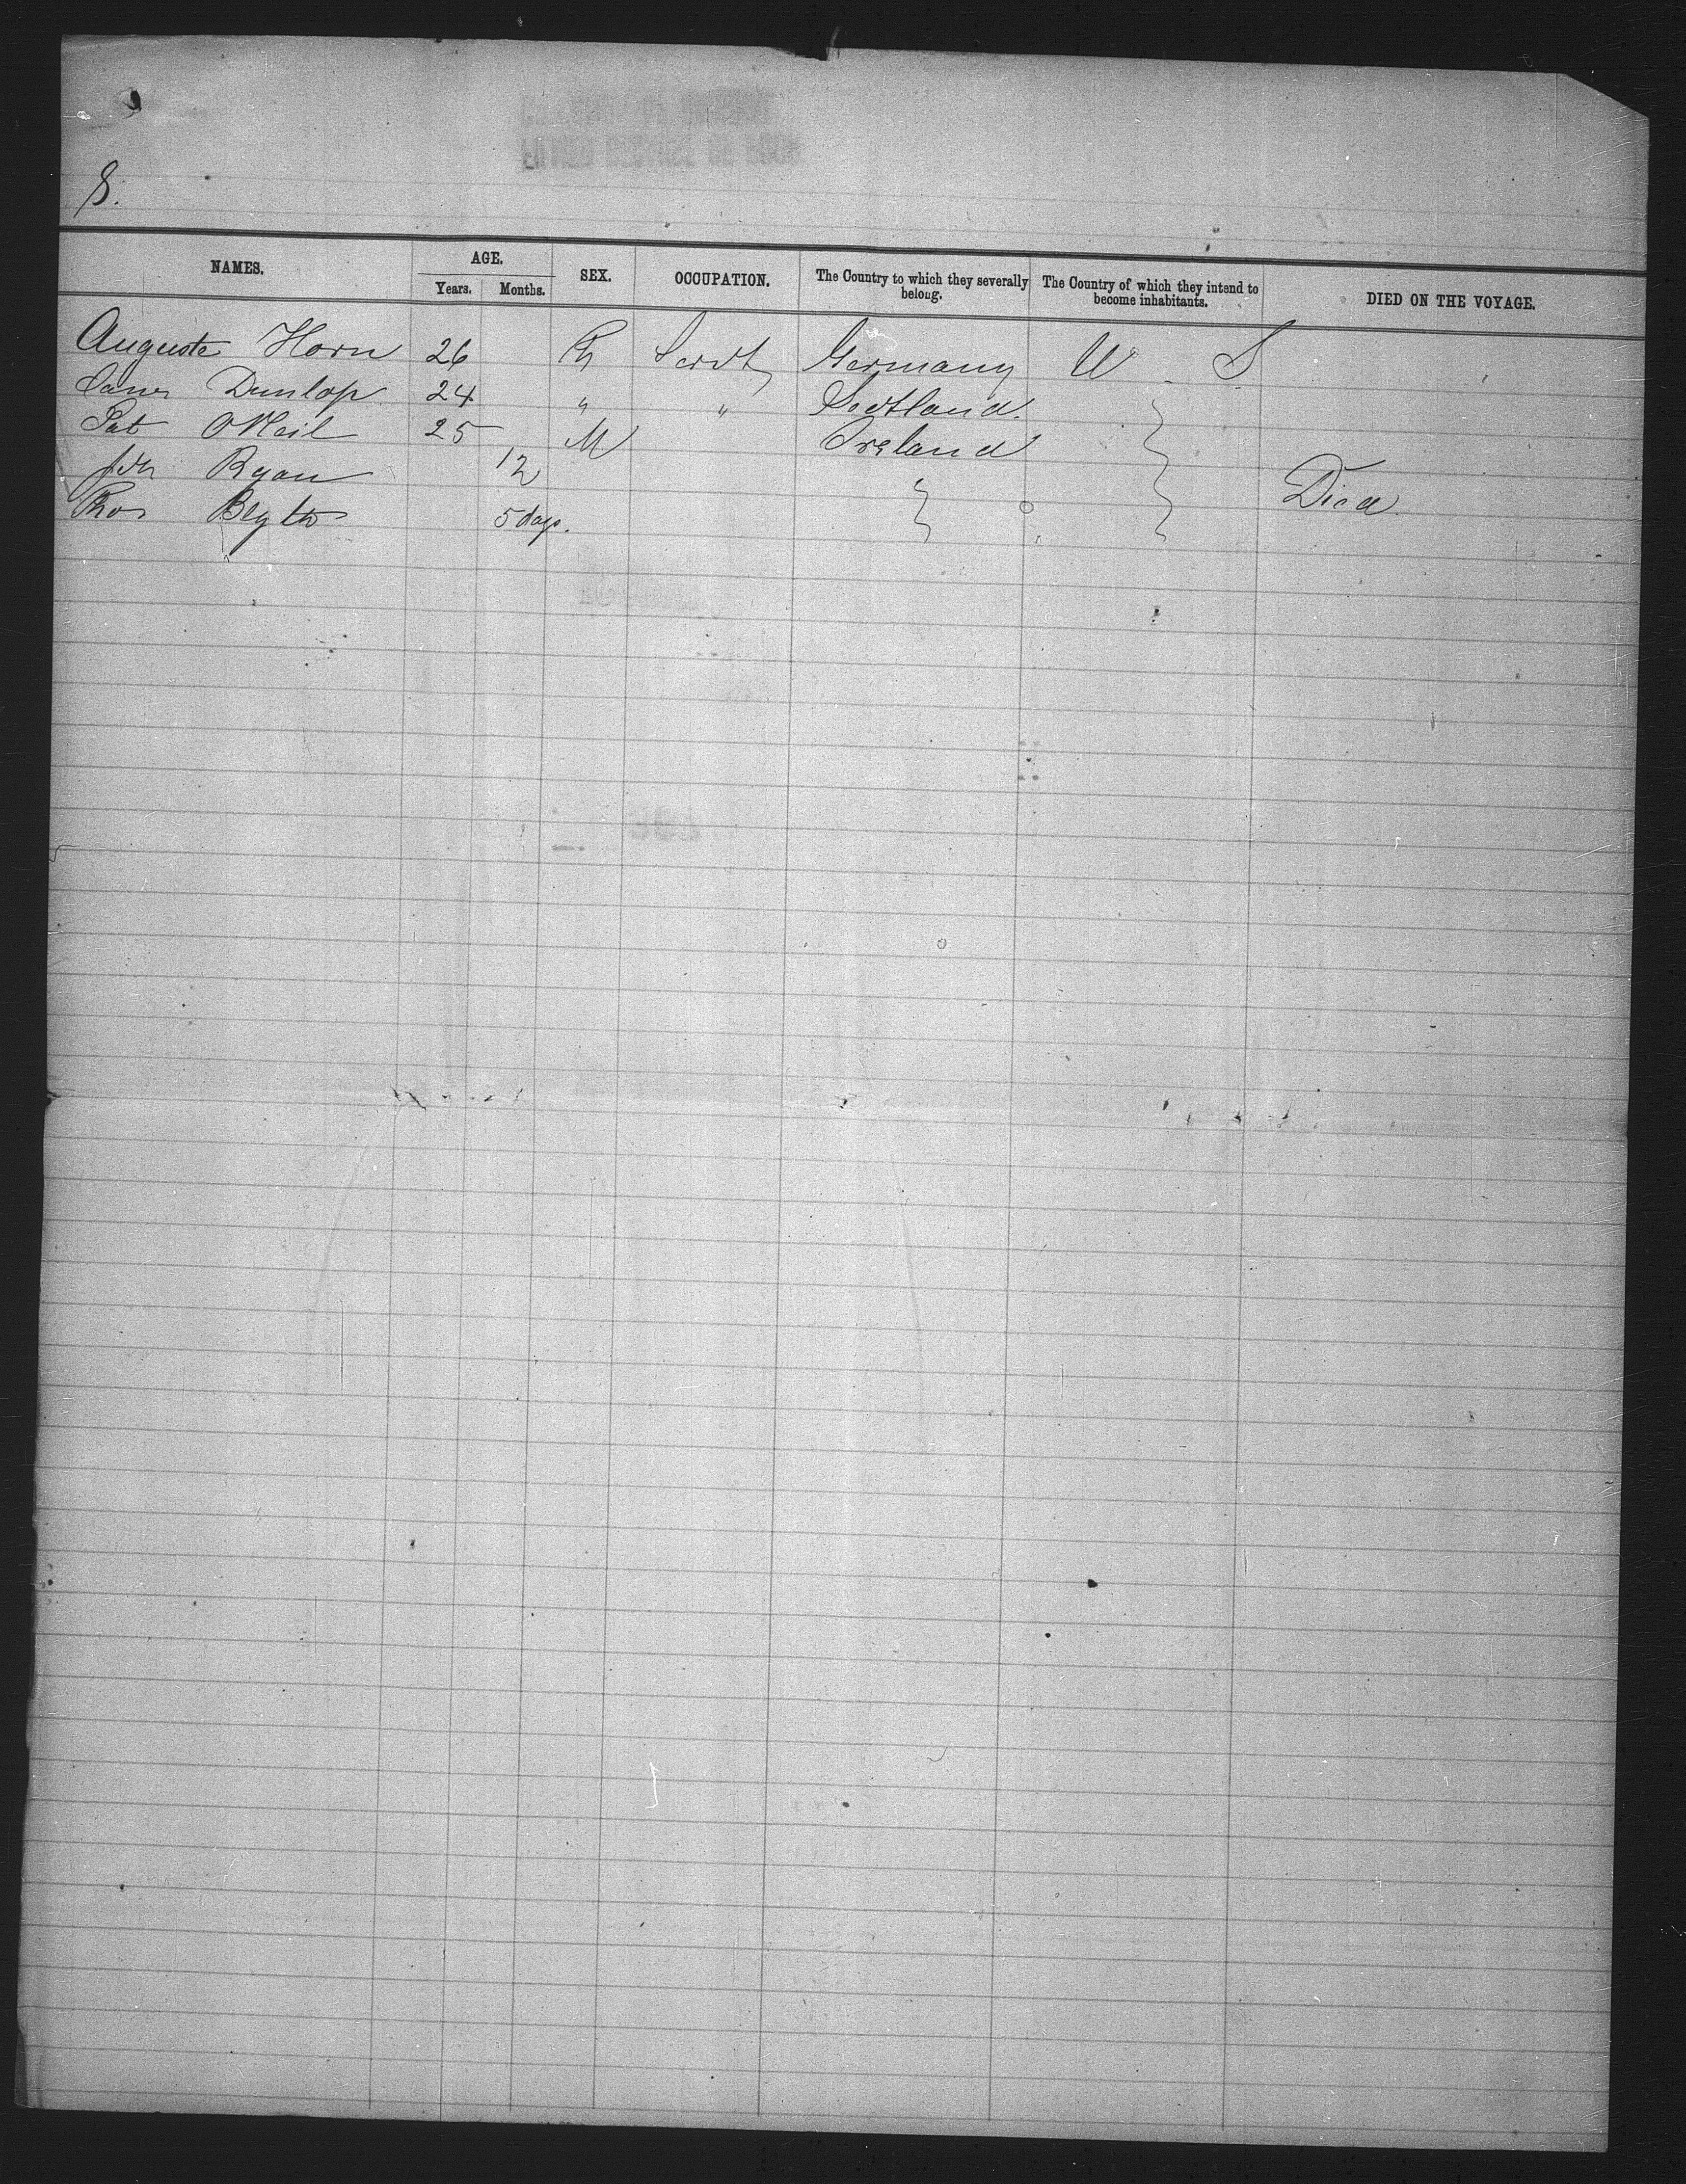 8.
NAMES. AGE. SEX. OCCUPATION. The Country to which they severally belong. The Country of which they intend to become inhabitants. DIED ON THE VOYAGE.
Years. Months.
Auguste Horn 26 Servt Germany U S
Dunlop 24 " " Scotland.
Pat ONeil 25 M Ireland
Ryan 12 Died
Blyth 5 days.